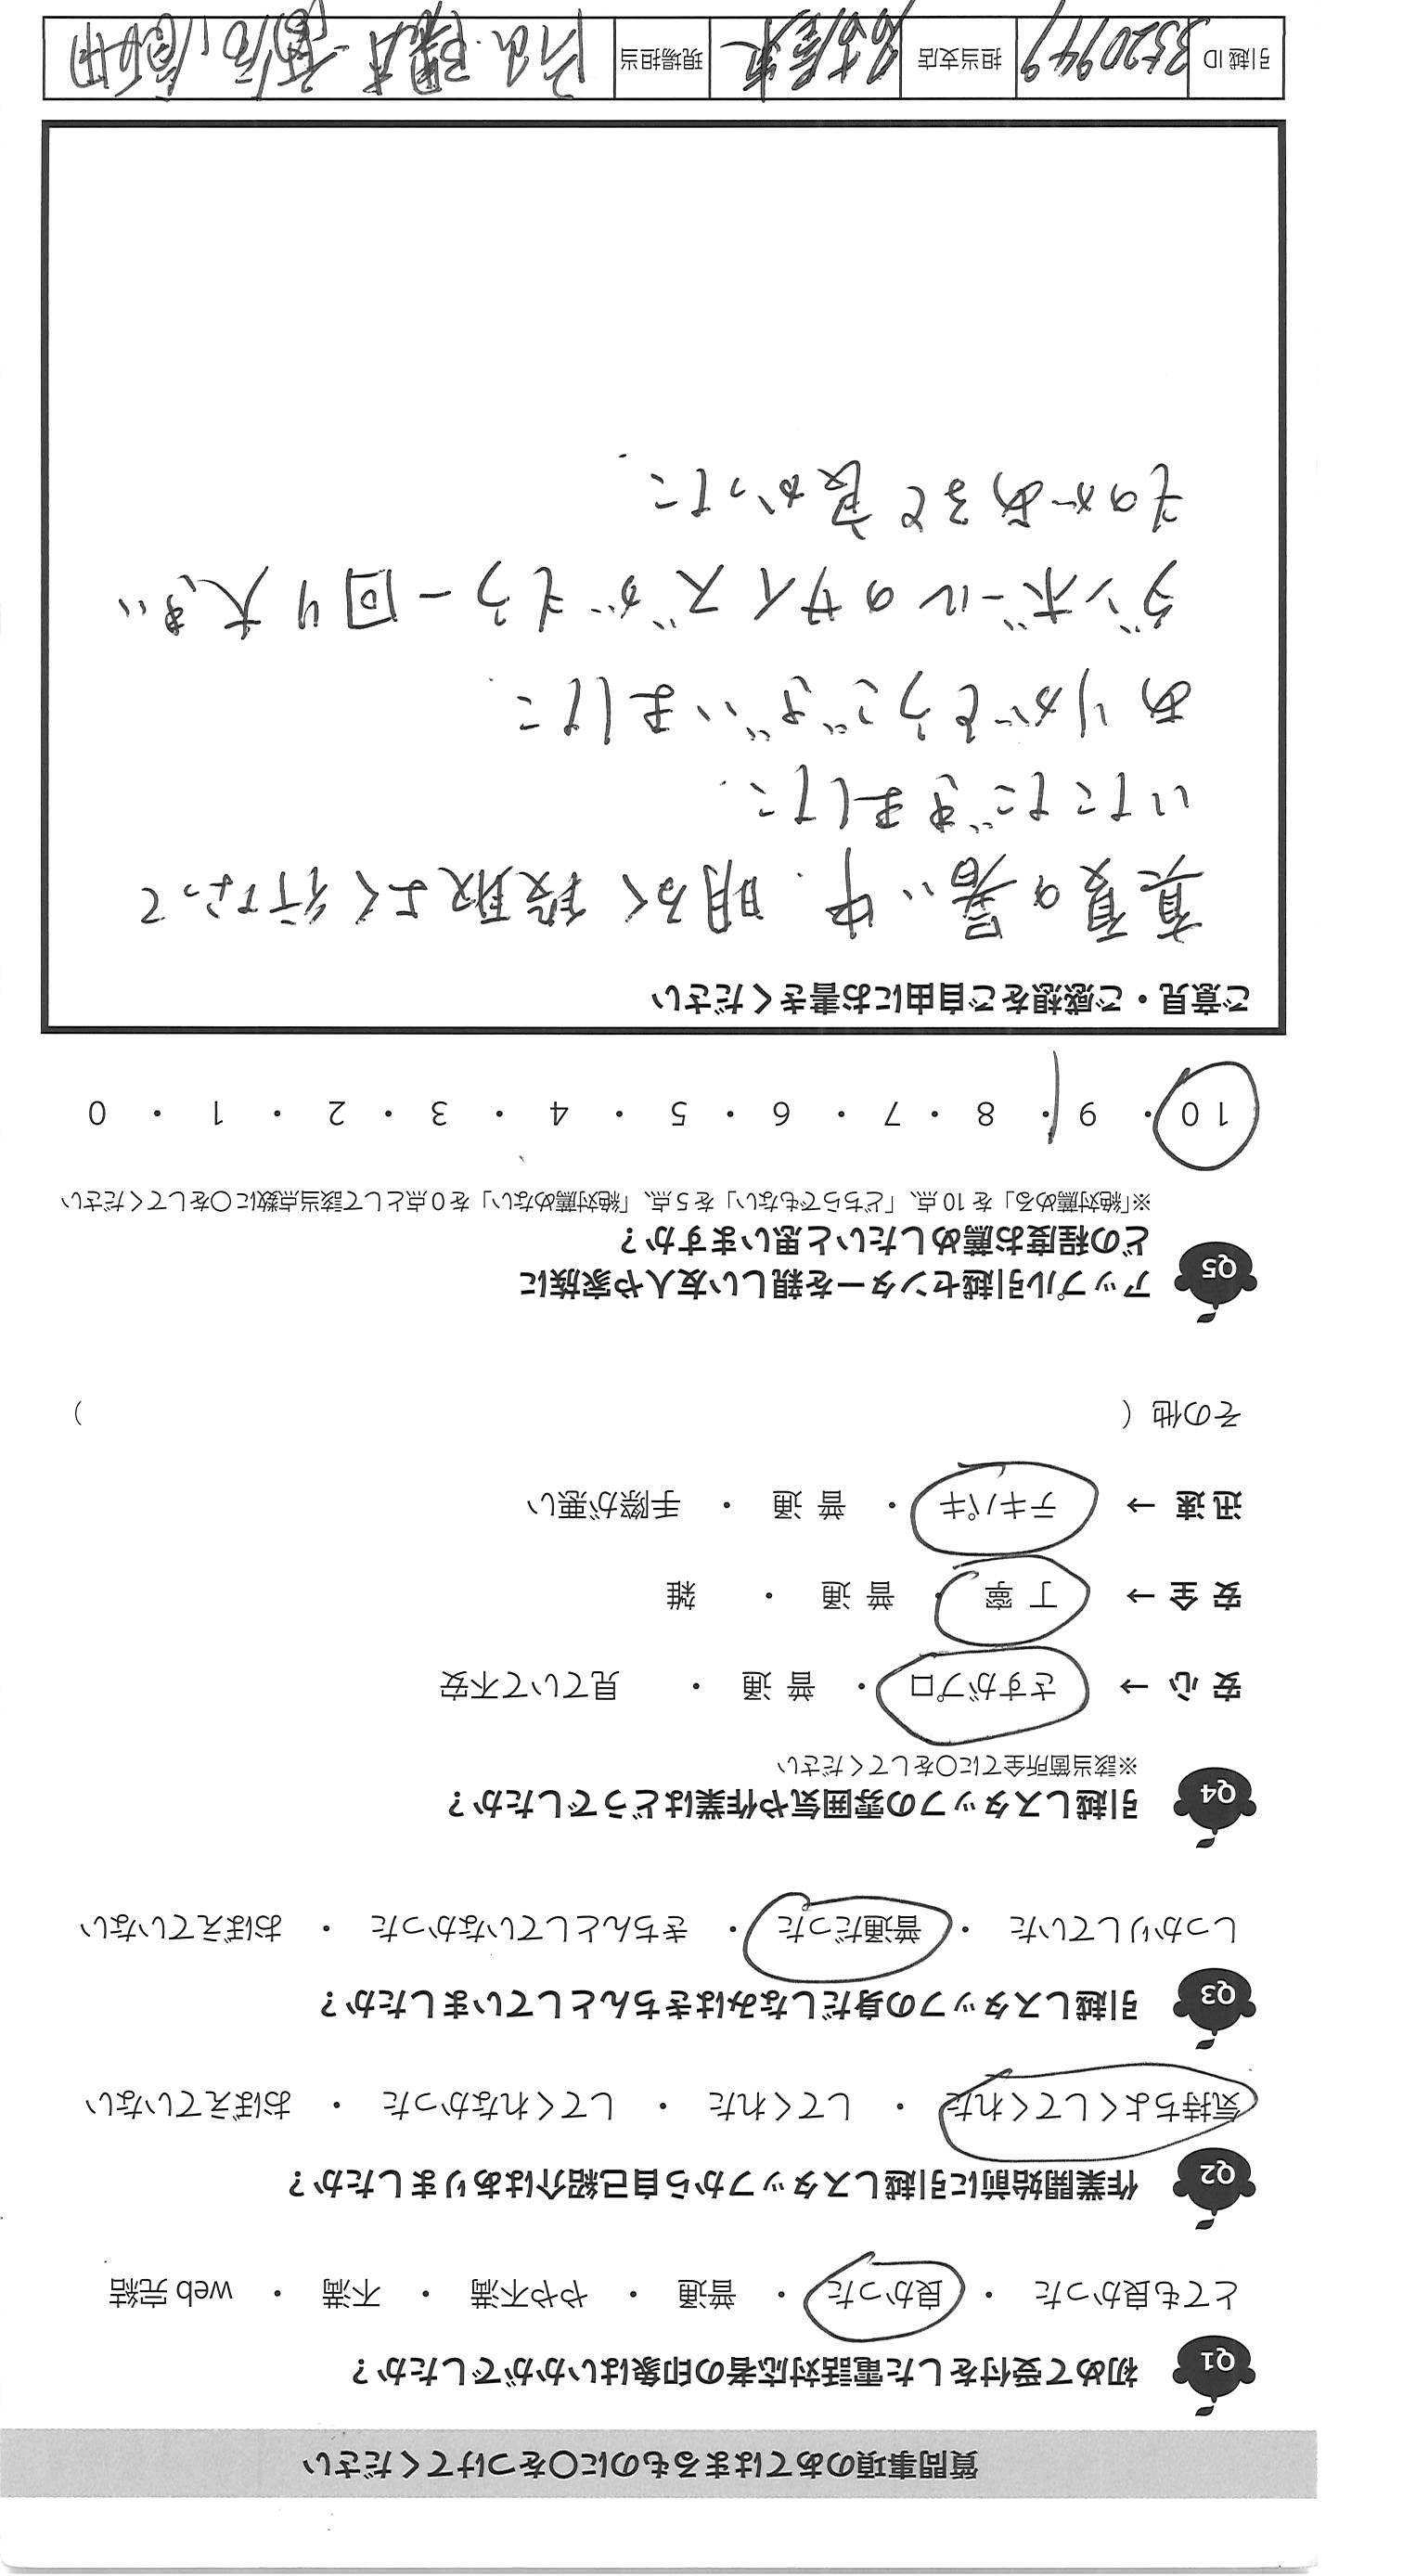 質問事項のあてはまるものに〇をつけてください
Q1 初めて受付をした電話対応者の印象はいかがでしたか？
とても良かった ・ 良かった ・ 普通 ・ やや不満 ・ 不満 ・ web 完結
Q2 作業開始前に引越しスタッフから自己紹介はありましたか？
気持ちよくしてくれた ・ してくれた ・ してくれなかった ・ おぼえていない
Q3 引越しスタッフの身だしなみはきちんとしていましたか？
しっかりしていた ・ 普通だった ・ きちんとしていなかった ・ おぼえていない
Q4 引越しスタッフの雰囲気や作業はどうでしたか？
※該当箇所全てに〇をしてください
安 心 → さすがプロ ・ 普 通 ・ 見ていて不安
安 全 → 丁 寧 ・ 普 通 ・ 雑
迅 速 → テキパキ ・ 普 通 ・ 手際が悪い
その他（ ）
Q5 アップル引越センターを親しい友人や家族に
どの程度お薦めしたいと思いますか？
※「絶対薦める」を 10 点、「どちらでもない」を 5 点、「絶対薦めない」を 0 点として該当点数に〇をしてください
10 ・ 9 ・ 8 ・ 7 ・ 6 ・ 5 ・ 4 ・ 3 ・ 2 ・ 1 ・ 0
ご意見・ご感想をご自由にお書きください
真夏の暑い中、明るく段取よく行なって
いただきました.
ありがとうございました.
ダンボールのサイズがもう一回り大きい
ものがあると良かった.
引越 ID 3520949 担当支店 名古屋東 現場担当